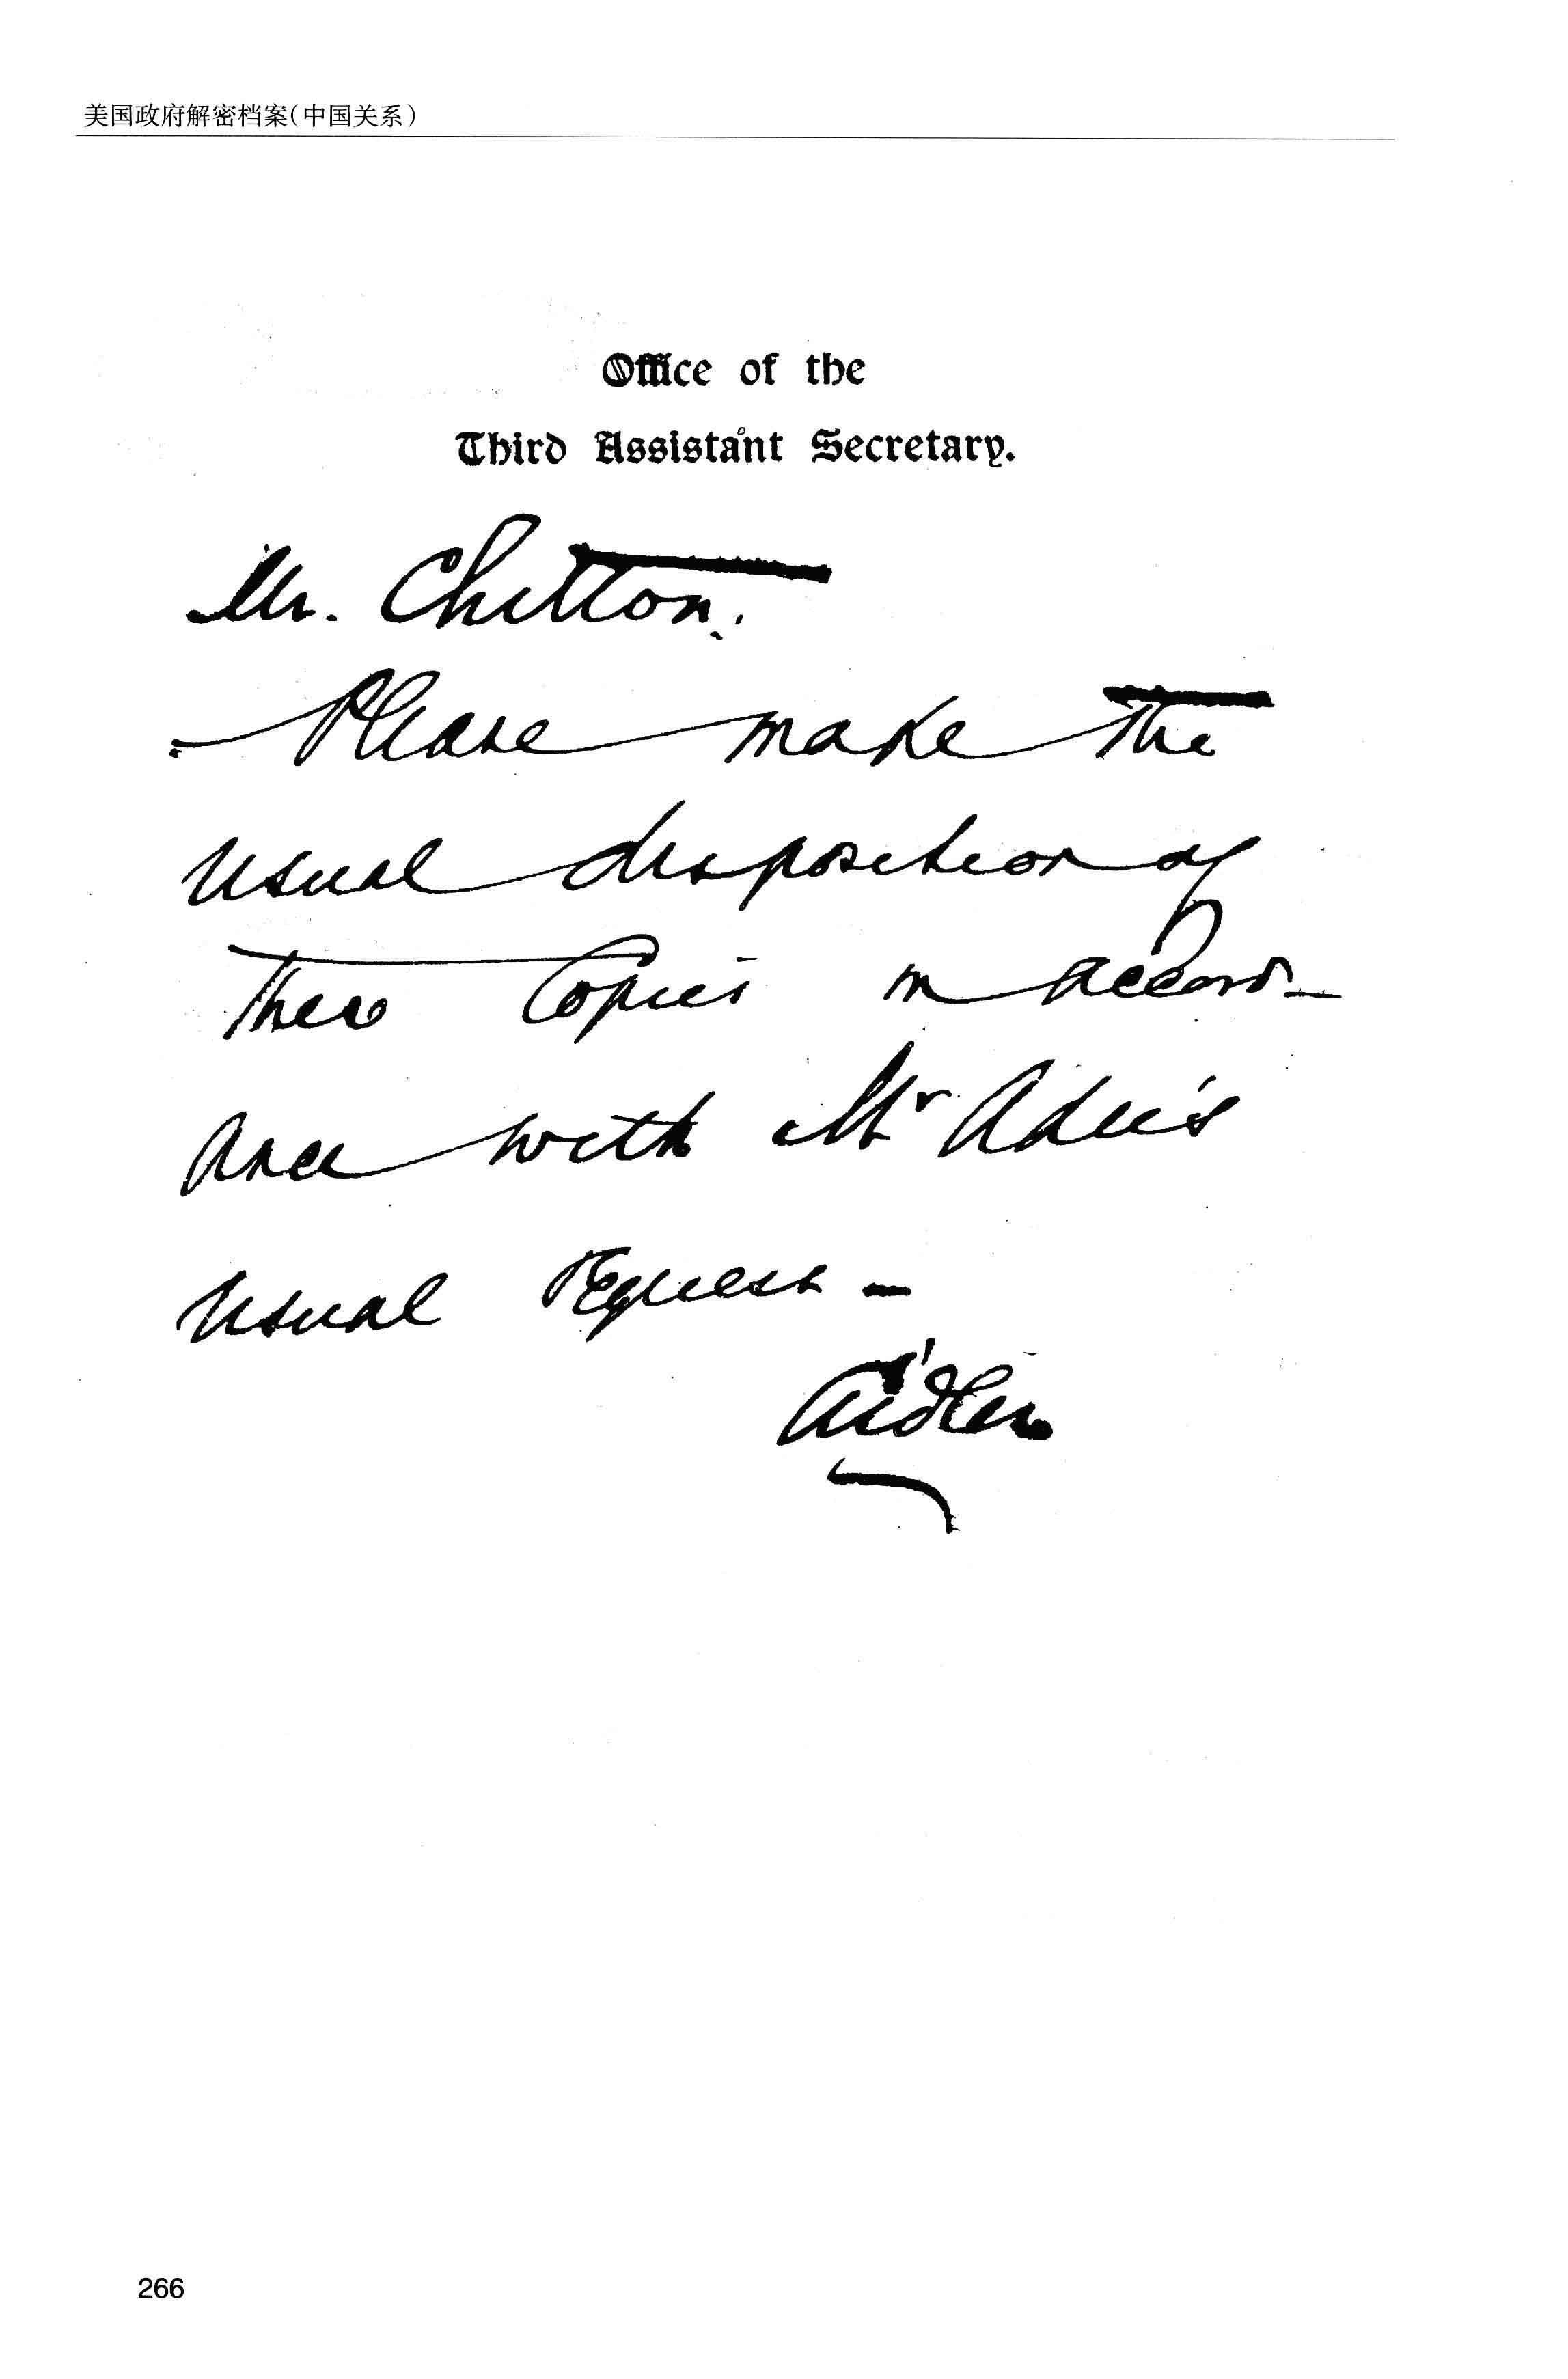 美国政府解密档案(中国关系)
Office of the
Third Assistant Secretary.
Mr. Chilton.
Please make the
usual disposition of
these copies in accord-
ance with Mr Adee's
usual request -
266